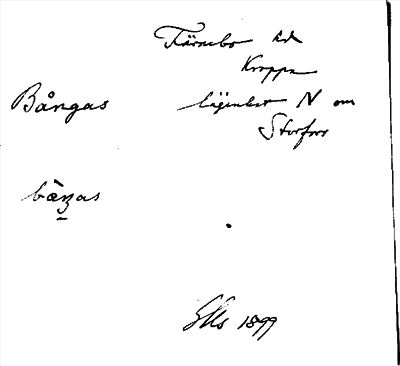 Färnebo hd
Kroppa
Bångas lägenhet N om
Storfors
bå̀ŋas
Ells 1899